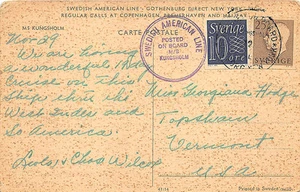 SWEDISH AMERICAN LINE - GOTHENBURG DIRECT NEW YORK
REGULAR CALLS AT COPENHAGEN, BREMERHAVEN AND HALIFAX
MS KUNGSHOLM
CARTE POSTALE
SWEDISH AMERICAN LINE
POSTED
ON BOARD
M/S
KUNGSHOLM
Sverige
10
ÖRE
Nov 29
We are having
a wonderful
Cruise on this
Ship to the
West Indies and
So America.
Lula & Chas Wilcox
Miss Georgiana Hodge
Topsham
Vermont
U.S.A
Printed in Sweden